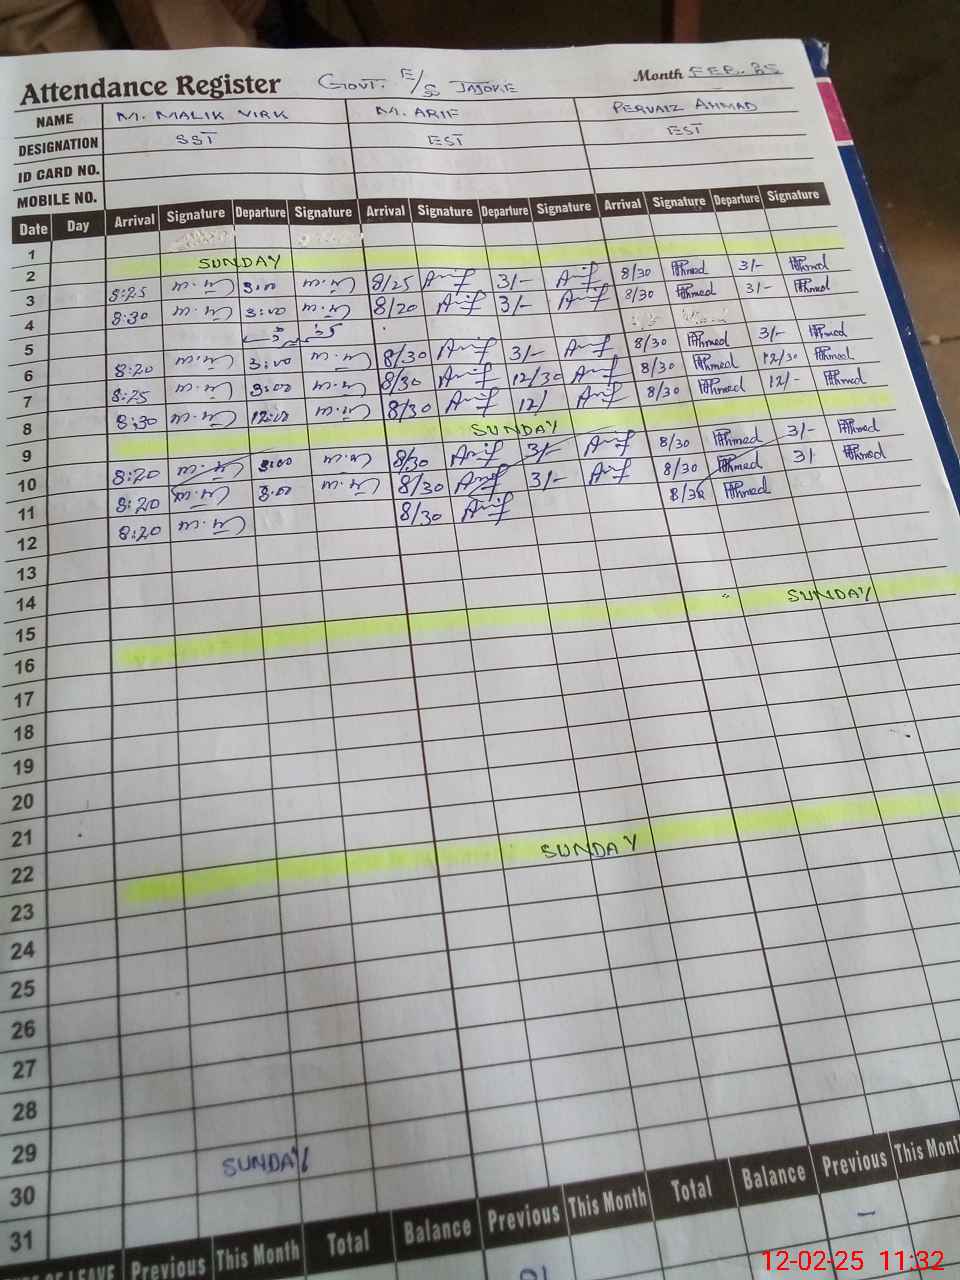 Attendance Register GOVT. E/S JAJOKIE Month FEB. 25
NAME M. MALIK VIRK M. ARIF PERVAIZ AHMAD
DESIGNATION SST EST EST
ID CARD NO.
MOBILE NO.
Date Day Arrival Signature Departure Signature Arrival Signature Departure Signature Arrival Signature Departure Signature
1
2 SUNDAY
3 8:25 3:00 8/25 Arif 3/- Arif 8/30 Ahmed 3/- Ahmed
4 8:30 3:00 8/20 Arif 3/- Arif 8/30 Ahmed 3/- Ahmed
5
6 8:20 3:00 8/30 Arif 3/- Arif 8/30 Ahmed 3/- Ahmed
7 8:25 3:00 8/30 Arif 12/30 Arif 8/30 Ahmed 12/30 Ahmed
8 8:30 12:00 8/30 Arif 12/ Arif 8/30 Ahmed 12/- Ahmed
9 SUNDAY
10 8:20 3:00 8/30 Arif 3/- Arif 8/30 Ahmed 3/- Ahmed
11 8:20 3:00 8/30 Arif 3/- Arif 8/30 Ahmed 3/ Ahmed
12 8:20 8/30 Arif 8/30 Ahmed
13
14
15 SUNDAY
16
17
18
19
20
21
22 SUNDAY
23
24
25
26
27
28
29
30 SUNDAY
31
OF LEAVE Previous This Month Total Balance Previous This Month Total Balance Previous This Month
12-02-25 11:32